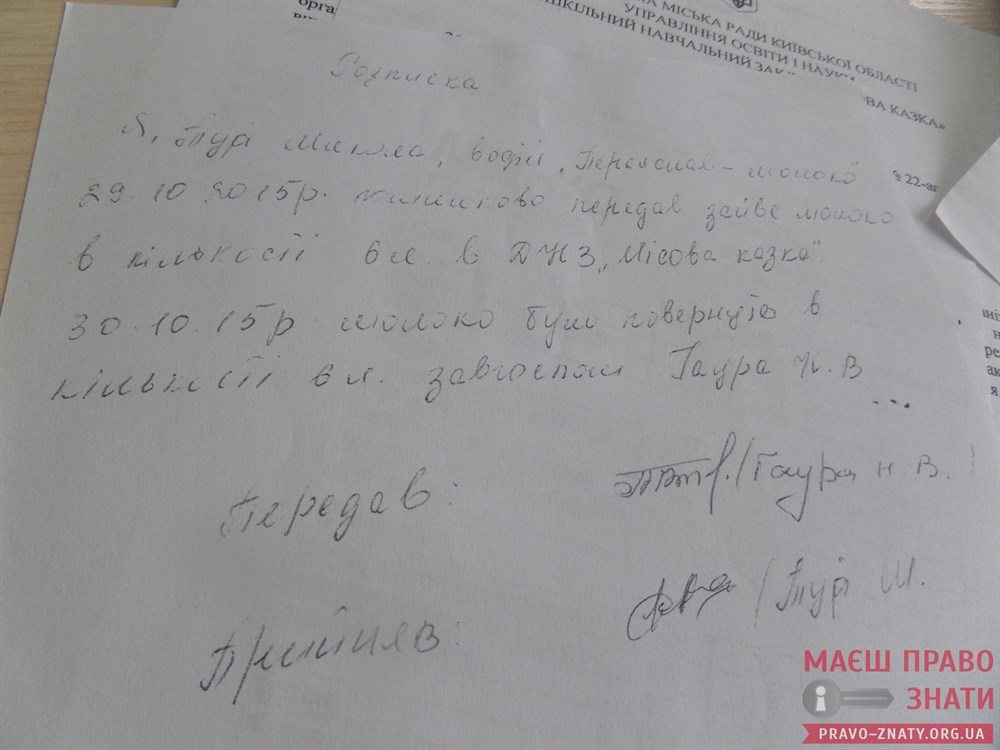 орга
КА МІСЬКА РАДИ КИЇВСЬКОЇ ОБЛАСТІ
УПРАВЛІННЯ ОСВІТИ І НАУК
ШКІЛЬНИЙ НАВЧАЛЬНИЙ ЗАК
ВА КАЗКА»
22-аг
Розписка
Я, Тур Микола, водій „Переяслав-молоко"
29.10.2015р. помилково передав зайве молоко
в кількості 6 л. в ДНЗ „Лісова казка".
30.10.15р молоко було повернуто в
кількості 6 л. завгоспом Гаура Н.В
Передав: /Гаура Н.В./
Прийняв: /Тур М.
МАЄШ ПРАВО
ЗНАТИ
PRAVO-ZNATY.ORG.UA